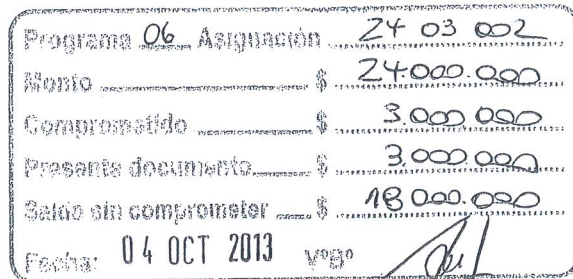 Programa 06 Asignación 24 03 002
Monto $ 24.000.000
Comprometido $ 3.000 000
Presente documento $ 3.000.000
Saldo sin comprometer $ 18 000.000
Fecha: 04 OCT 2013 VºBº